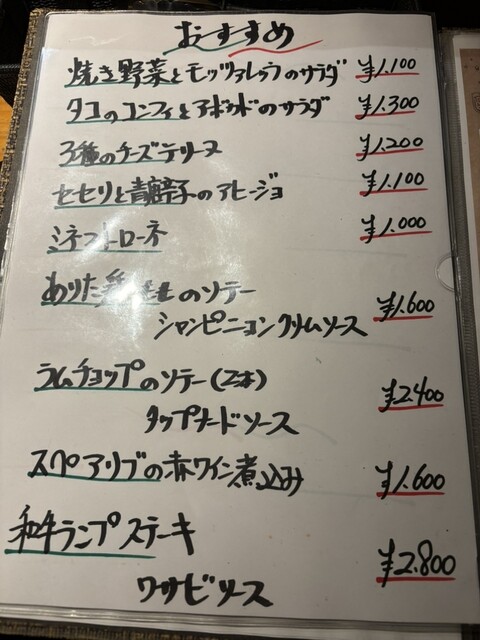 おすすめ
焼き野菜とモッツァレラのサラダ ¥1.100
タコのコンフィとアボカドのサラダ ¥1.300
3種のチーズテリーヌ ¥1.200
セセリと青唐辛子のアヒージョ ¥1.100
ミネストローネ ¥1.000
ありた のソテー
シャンピニョンクリームソース ¥1.600
ラムチョップのソテー(2本)
タップナードソース ¥2.400
スペアリブの赤ワイン煮込み ¥1.600
和牛ランプステーキ
ワサビソース ¥2.800